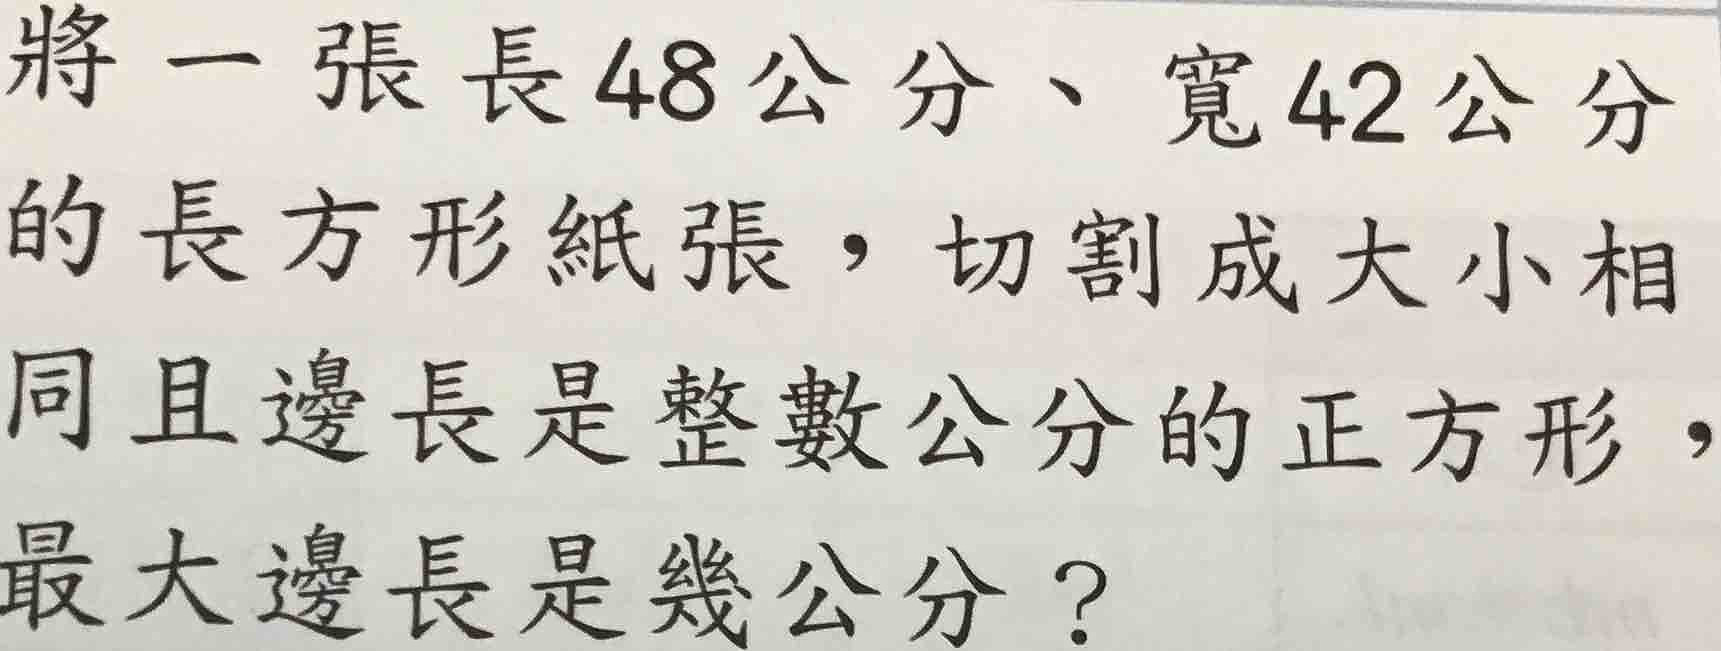 將一張長48公分、寬42公分
的長方形紙張，切割成大小相
同且邊長是整數公分的正方形，
最大邊長是幾公分？